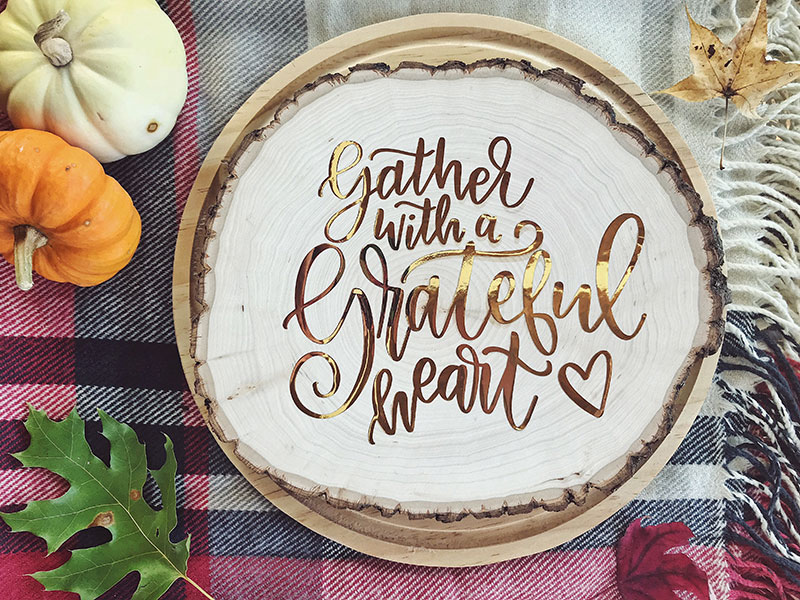 Gather
with a
Grateful
heart